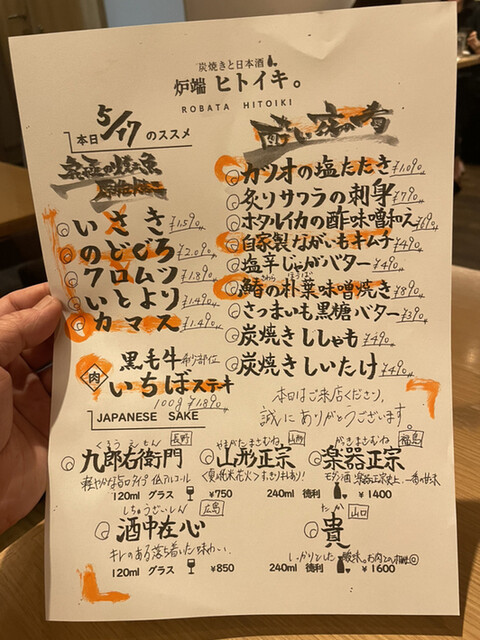 炭焼きと日本酒
炉端 ヒトイキ。
ROBATA HITOIKI
本日 5/17 のススメ
いさき ¥1.590
のどぐろ ¥2.090
クロムツ ¥1.890
いとより ¥1.490
カマス ¥1.490
肉 黒毛牛 希少部位
いちぼステーキ
100g ¥1.890
カツオの塩たたき ¥1.090
炙りサワラの刺身 ¥790
ホタルイカの酢味噌和え ¥690
自家製ながいもキムチ ¥490
塩辛じゃがバター ¥490
さわら ほうば
鰆の朴葉味噌焼き ¥890
さつまいも黒糖バター ¥390
炭焼きししゃも ¥490
炭焼きしいたけ ¥490
本日はご来店くださり、
誠にありがとうございます。
JAPANESE SAKE
くろうえもん 長野
九郎右衛門
軽やかな旨口タイプ 低アルコール
やまがたまさむね 山形
山形正宗
がっきまさむね 福島
楽器正宗
120ml グラス ¥750
240ml 徳利 ¥1400
しゅちゅうざいしん 広島
酒中在心
キレのある落ち着いた味わい.
120ml グラス ¥850
たか 山口
貴
しっかりとした酸味。お肉との相性◎
240ml 徳利 ¥1600